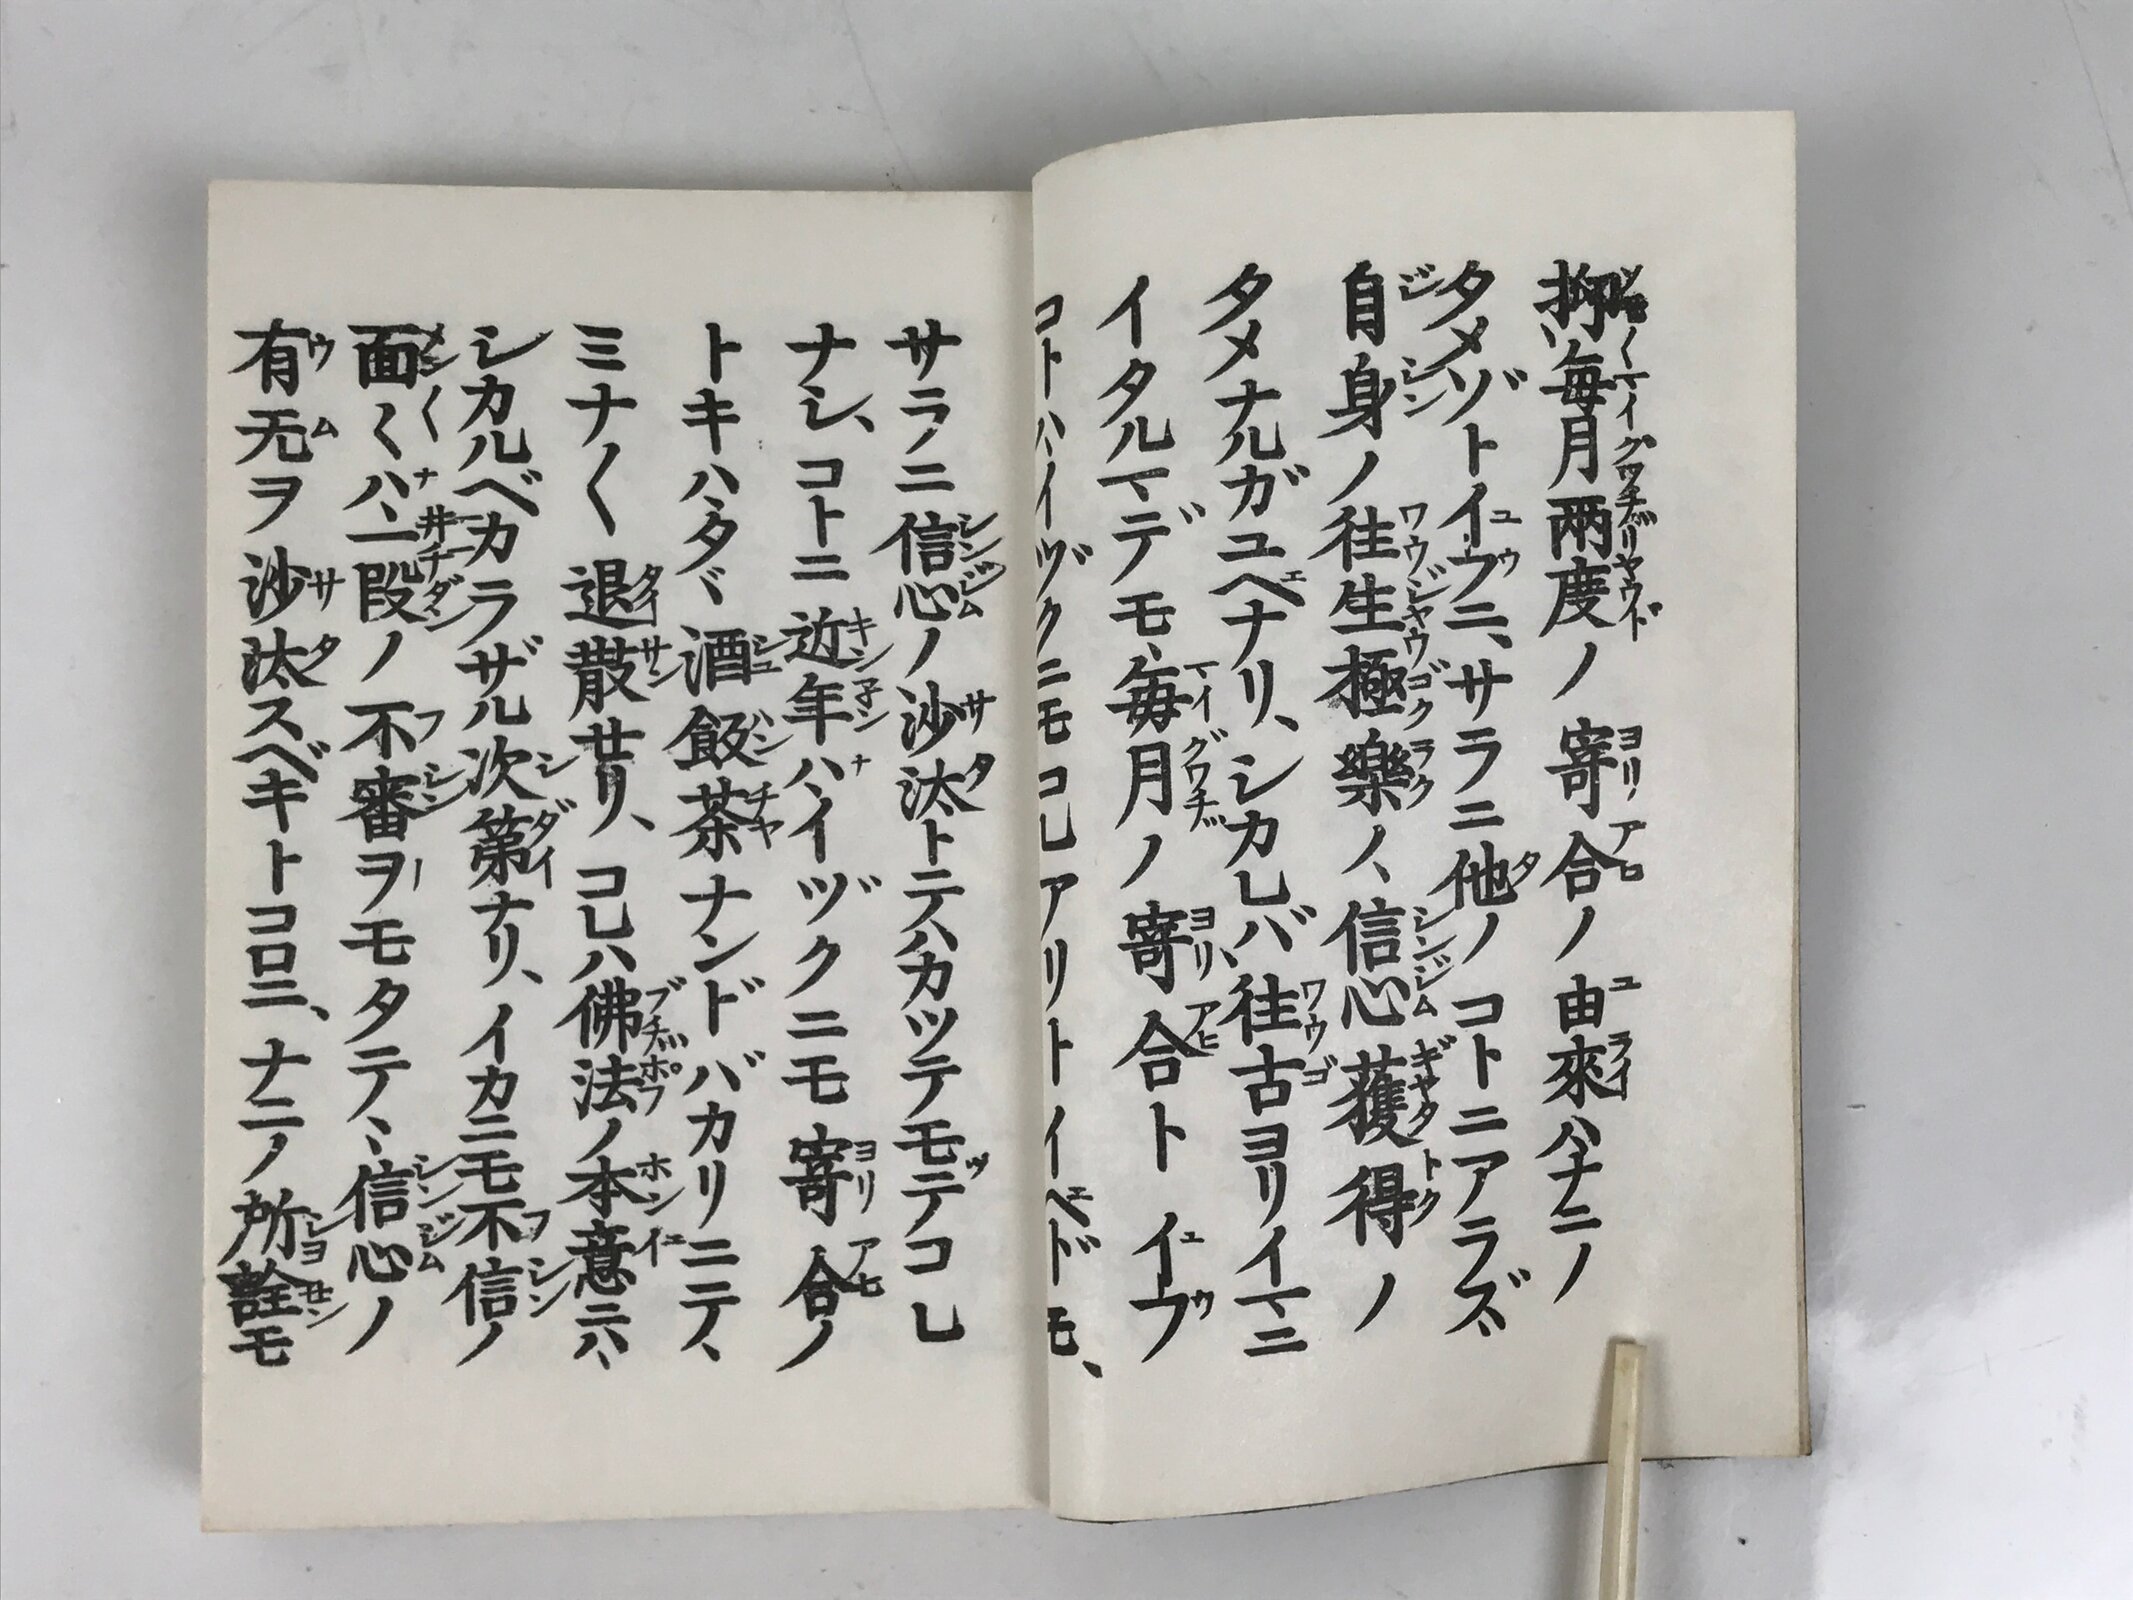 抑、毎月兩度ノ寄合ノ由來ハナニノ
タメゾトイフニ、サラニ他ノコトニアラズ、
自身ノ往生極樂ノ、信心獲得ノ
タメナルガユヘナリ、シカレバ往古ヨリイマニ
イタルマデモ、毎月ノ寄合トイフ
コトハ、イヅクニモコレアリトイヘドモ、
サラニ信心ノ沙汰トテハ、カツテモテコレ
ナシ、コトニ近年ハ、イヅクニモ寄合ノ
トキハ、タヾ酒飯茶ナンドバカリニテ、
ミナ〱退散セリ、コレハ佛法ノ本意ニハ、
シカルベカラザル次第ナリ、イカニモ不信ノ
面〱ハ、一段ノ不審ヲモタテヽ、信心ノ
有无ヲ沙汰スベキトコロニ、ナニノ所詮モ